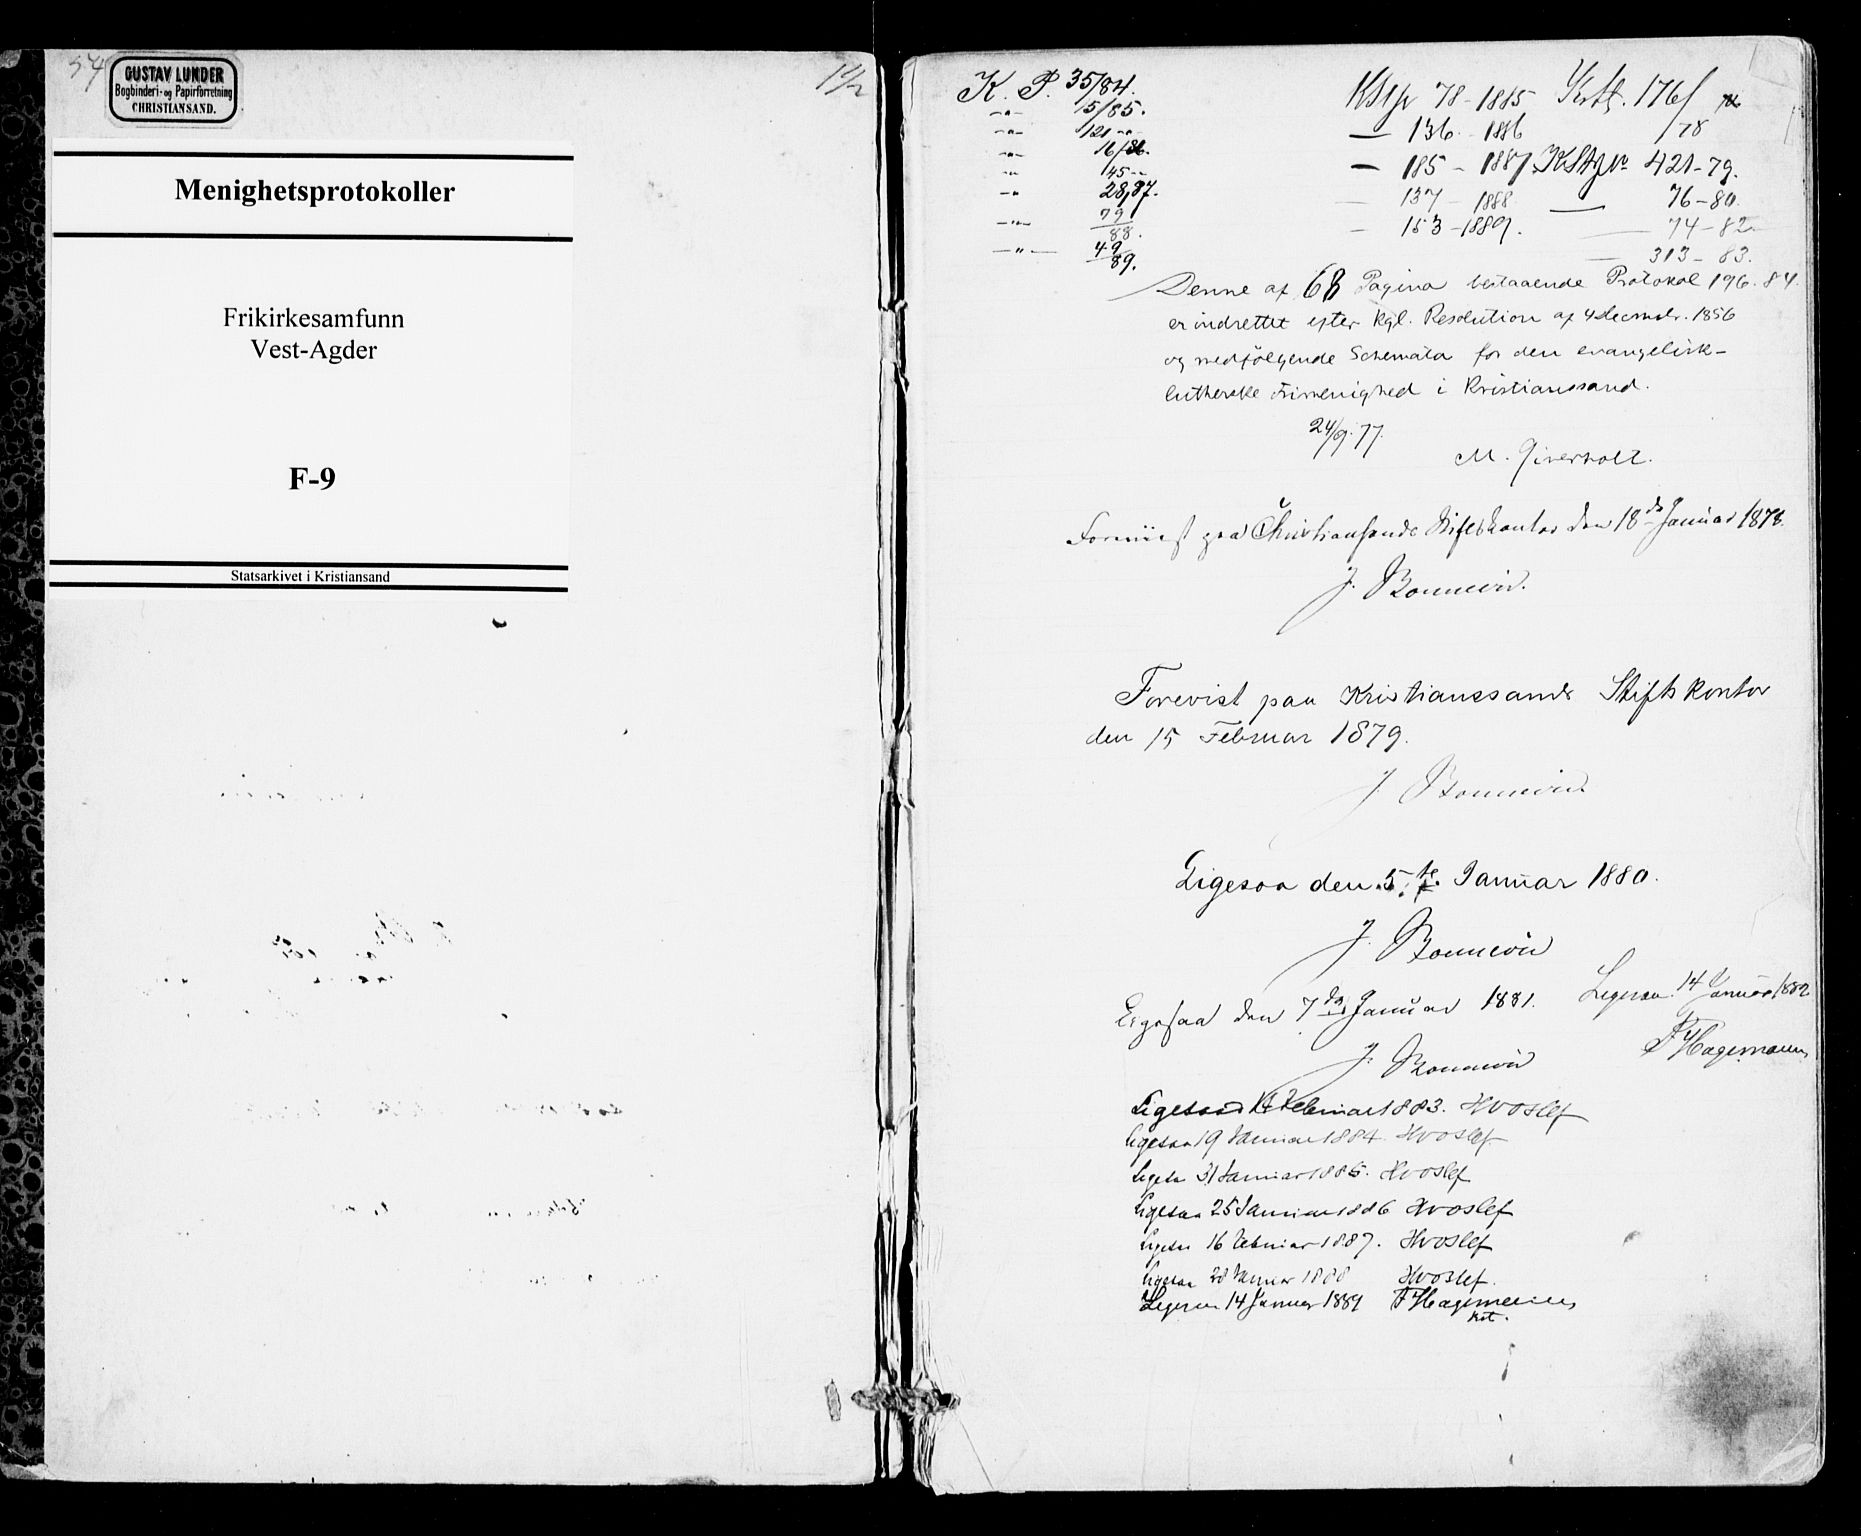 54
1 1/2
GUSTAV LUNDER
Bogbinderi- og Papirforretning
CHRISTIANSAND.
Menighetsprotokoller
Frikirkesamfunn
Vest-Agder
F-9
Statsarkivet i Kristiansand
K. P. 35/84.
-"- 15/85.
-"- 121 -"-
-"- 16/86.
-"- 45 -"-
-"- 28/87.
-"- 79/88.
-"- 49/89.
78 - 1885
— 136 - 1886
— 185 - 1887
— 137 - 1888
— 153 - 1889.
176/78
421-79.
— 76-80.
— 74-82.
— 313-83.
196-84.
Denne af 68 Pagina bestaaende Protokol
er indrettet efter Kgl. Resolution af 4 Decmbr. 1856
og medfølgende Schemata for den evangelisk-
lutherske Frimenighed i Kristianssand.
24/9.77.
M. Giverholt.
Foreviist paa Christianssands Stiftskontor den 18de Januar 1878.
J. Bonnevie.
Forevist paa Kristianssands Stiftskontor
den 15 Februar 1879.
J. Bonnevie
Ligesaa den 5te Januar 1880.
J. Bonnevie
Ligesaa den 7de Januar 1881.
J. Bonnevie
Ligesaa 14 Januar 1882
Hagemann
Ligesaa 14 Februar 1883. Hvoslef
Ligesaa 19 Januar 1884. Hvoslef.
Ligesaa 31 Januar 1885. Hvoslef
Ligesaa 25 Januar 1886 Hvoslef
Ligesaa 16 Februar 1887. Hvoslef
Ligesaa 28 Januar 1888 Hvoslef.
Ligesaa 14 Januar 1889 Hagemann
kst.